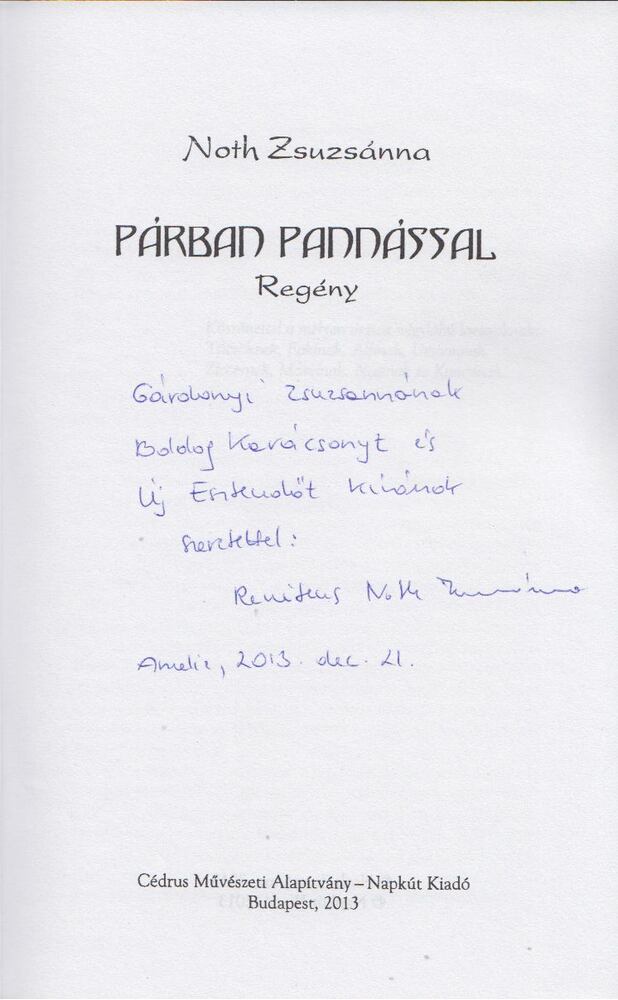 Noth Zsuzsánna
PÁRBAN PANNÁSSAL
Regény
Gárdonyi Zsuzsannának
Boldog Karácsonyt és
Új Esztendőt kívánok
szeretettel:
Noth Zsuzsánna
2013. dec. 21.
Cédrus Művészeti Alapítvány – Napkút Kiadó
Budapest, 2013